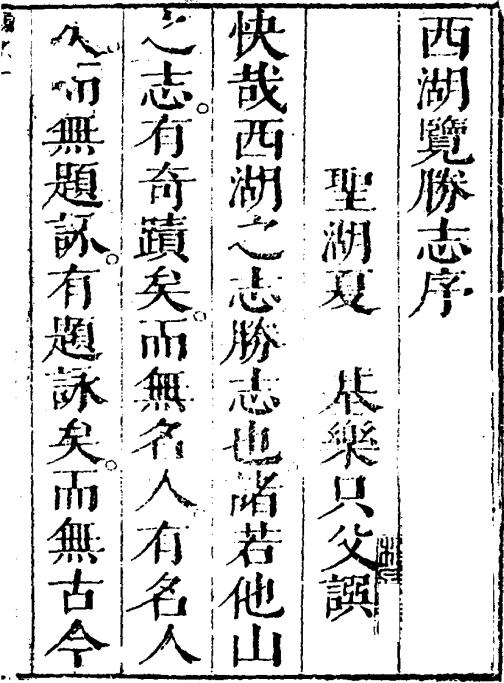 西湖覽勝志序
聖湖夏基樂只父譔
快哉西湖之志勝志也諸若他山
之志。有奇蹟矣。而無名人有名人
矣而無題詠。有題詠矣。而無古今